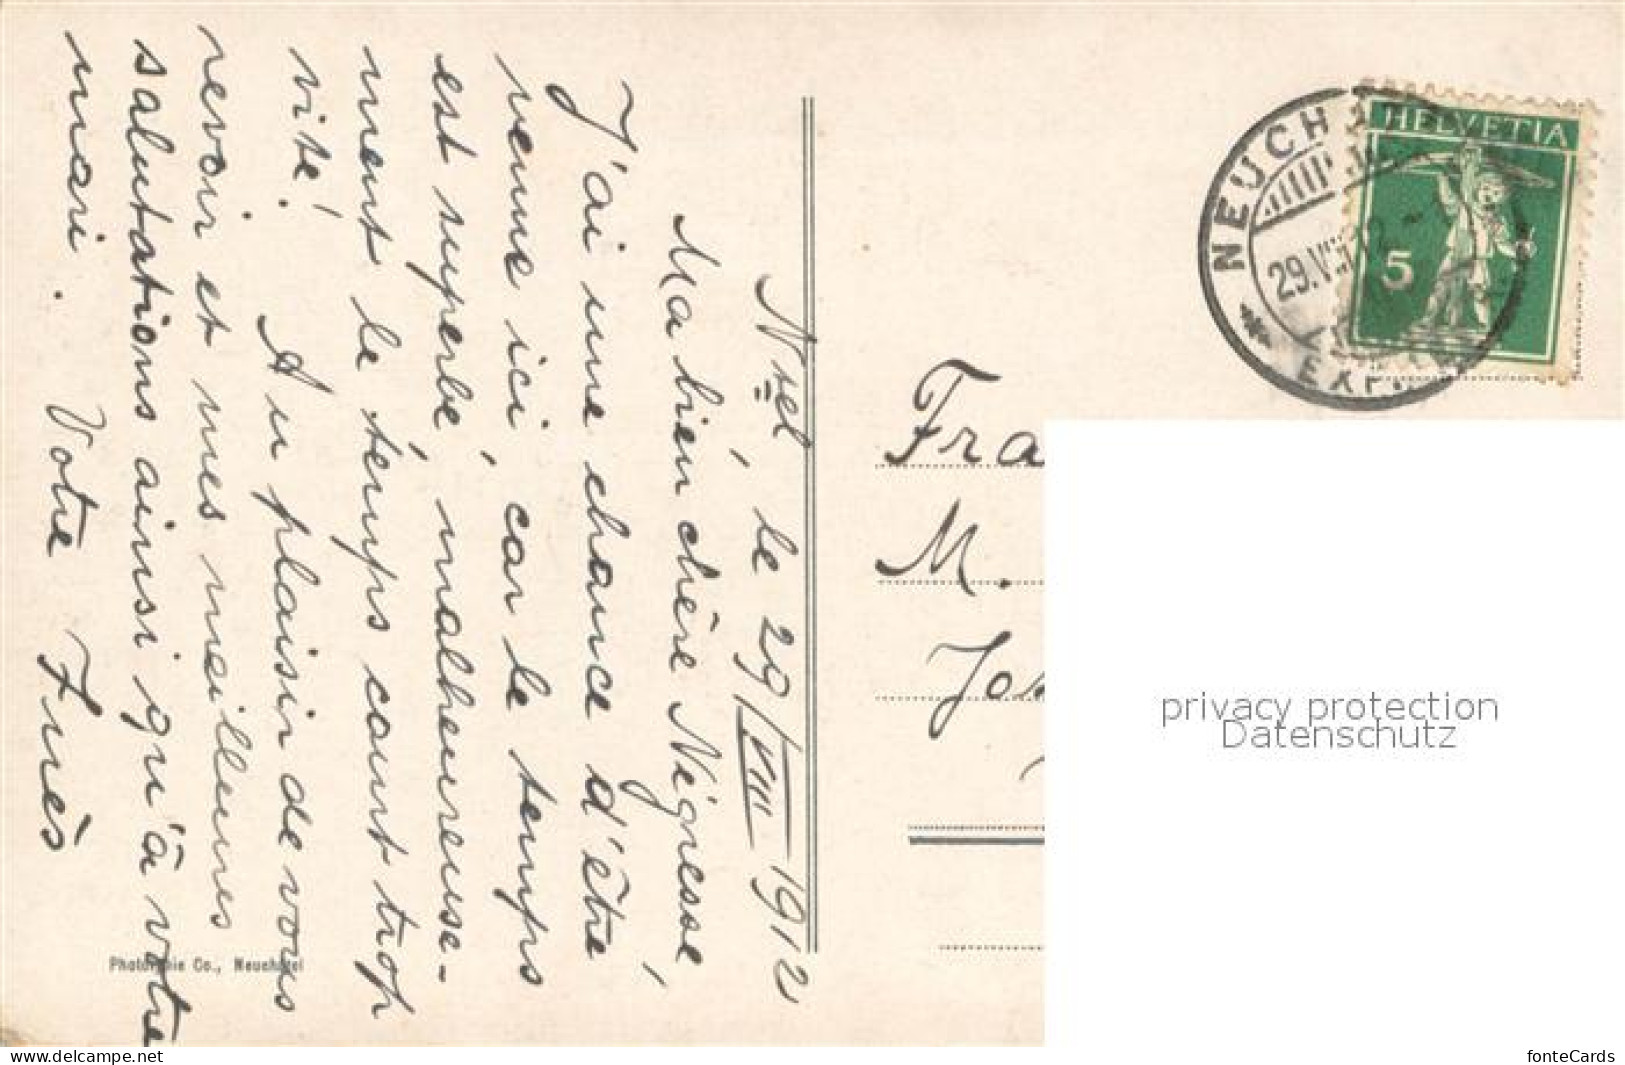 Ntel, le 29/VIII 1912
Ma bien chère Négresse,
J'ai une chance d'être
venue ici, car le temps
est superbe, malheureuse-
ment le temps court trop
vite! Au plaisir de vous
revoir et mes meilleures
salutations ainsi qu'à votre
mari. Votre
Photo Co., Neuchâtel
NEUCH
29.VIII.12
EXP.
HELVETIA
5
Fra
M.
Jos
privacy protection
Datenschutz
www.delcampe.net website
fonteCards